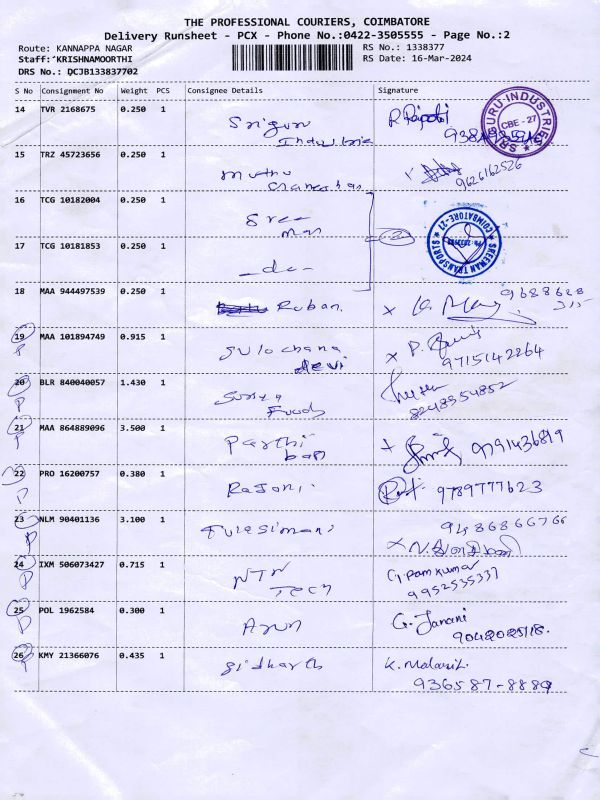 THE PROFESSIONAL COURIERS, COIMBATORE
Delivery Runsheet - PCX - Phone No.:0422-3505555 - Page No.:2
Route: KANNAPPA NAGAR RS No.: 1338377
Staff: KRISHNAMOORTHI RS Date: 16-Mar-2024
DRS No.: DCJB133837702
S No Consignment No Weight PCS Consignee Details Signature
14 TVR 2168675 0.250 1 Sriguru
Industrie
SRI GURU INDUSTRIES
CBE - 27
15 TRZ 45723656 0.250 1 muthu
9626162526
16 TCG 10182004 0.250 1 Sree
man
17 TCG 10181853 0.250 1 -do-
SREEMAN TRANSPORTS
COIMBATORE-27
18 MAA 944497539 0.250 1 Ruban. x
19 MAA 101894749 0.915 1 Sulochana
devi
x P.
9715142264
P
20 BLR 840040057 1.430 1 Surya
Foods
8248954852
P
21 MAA 864889096 3.500 1 Parthi
ban
9791436819
P
22 PRO 16200757 0.380 1 Rajani. 9789777623
P
23 NLM 90401136 3.100 1 Tulasimani 9486866766
P
24 IXM 506073427 0.715 1 NTN
Tech
G. Ramkumar
9952535337
P
25 POL 1962584 0.300 1 Arun G. Janani
9042025118.
P
26 KMY 21366076 0.435 1 Sidharth K.
936587-8889
P